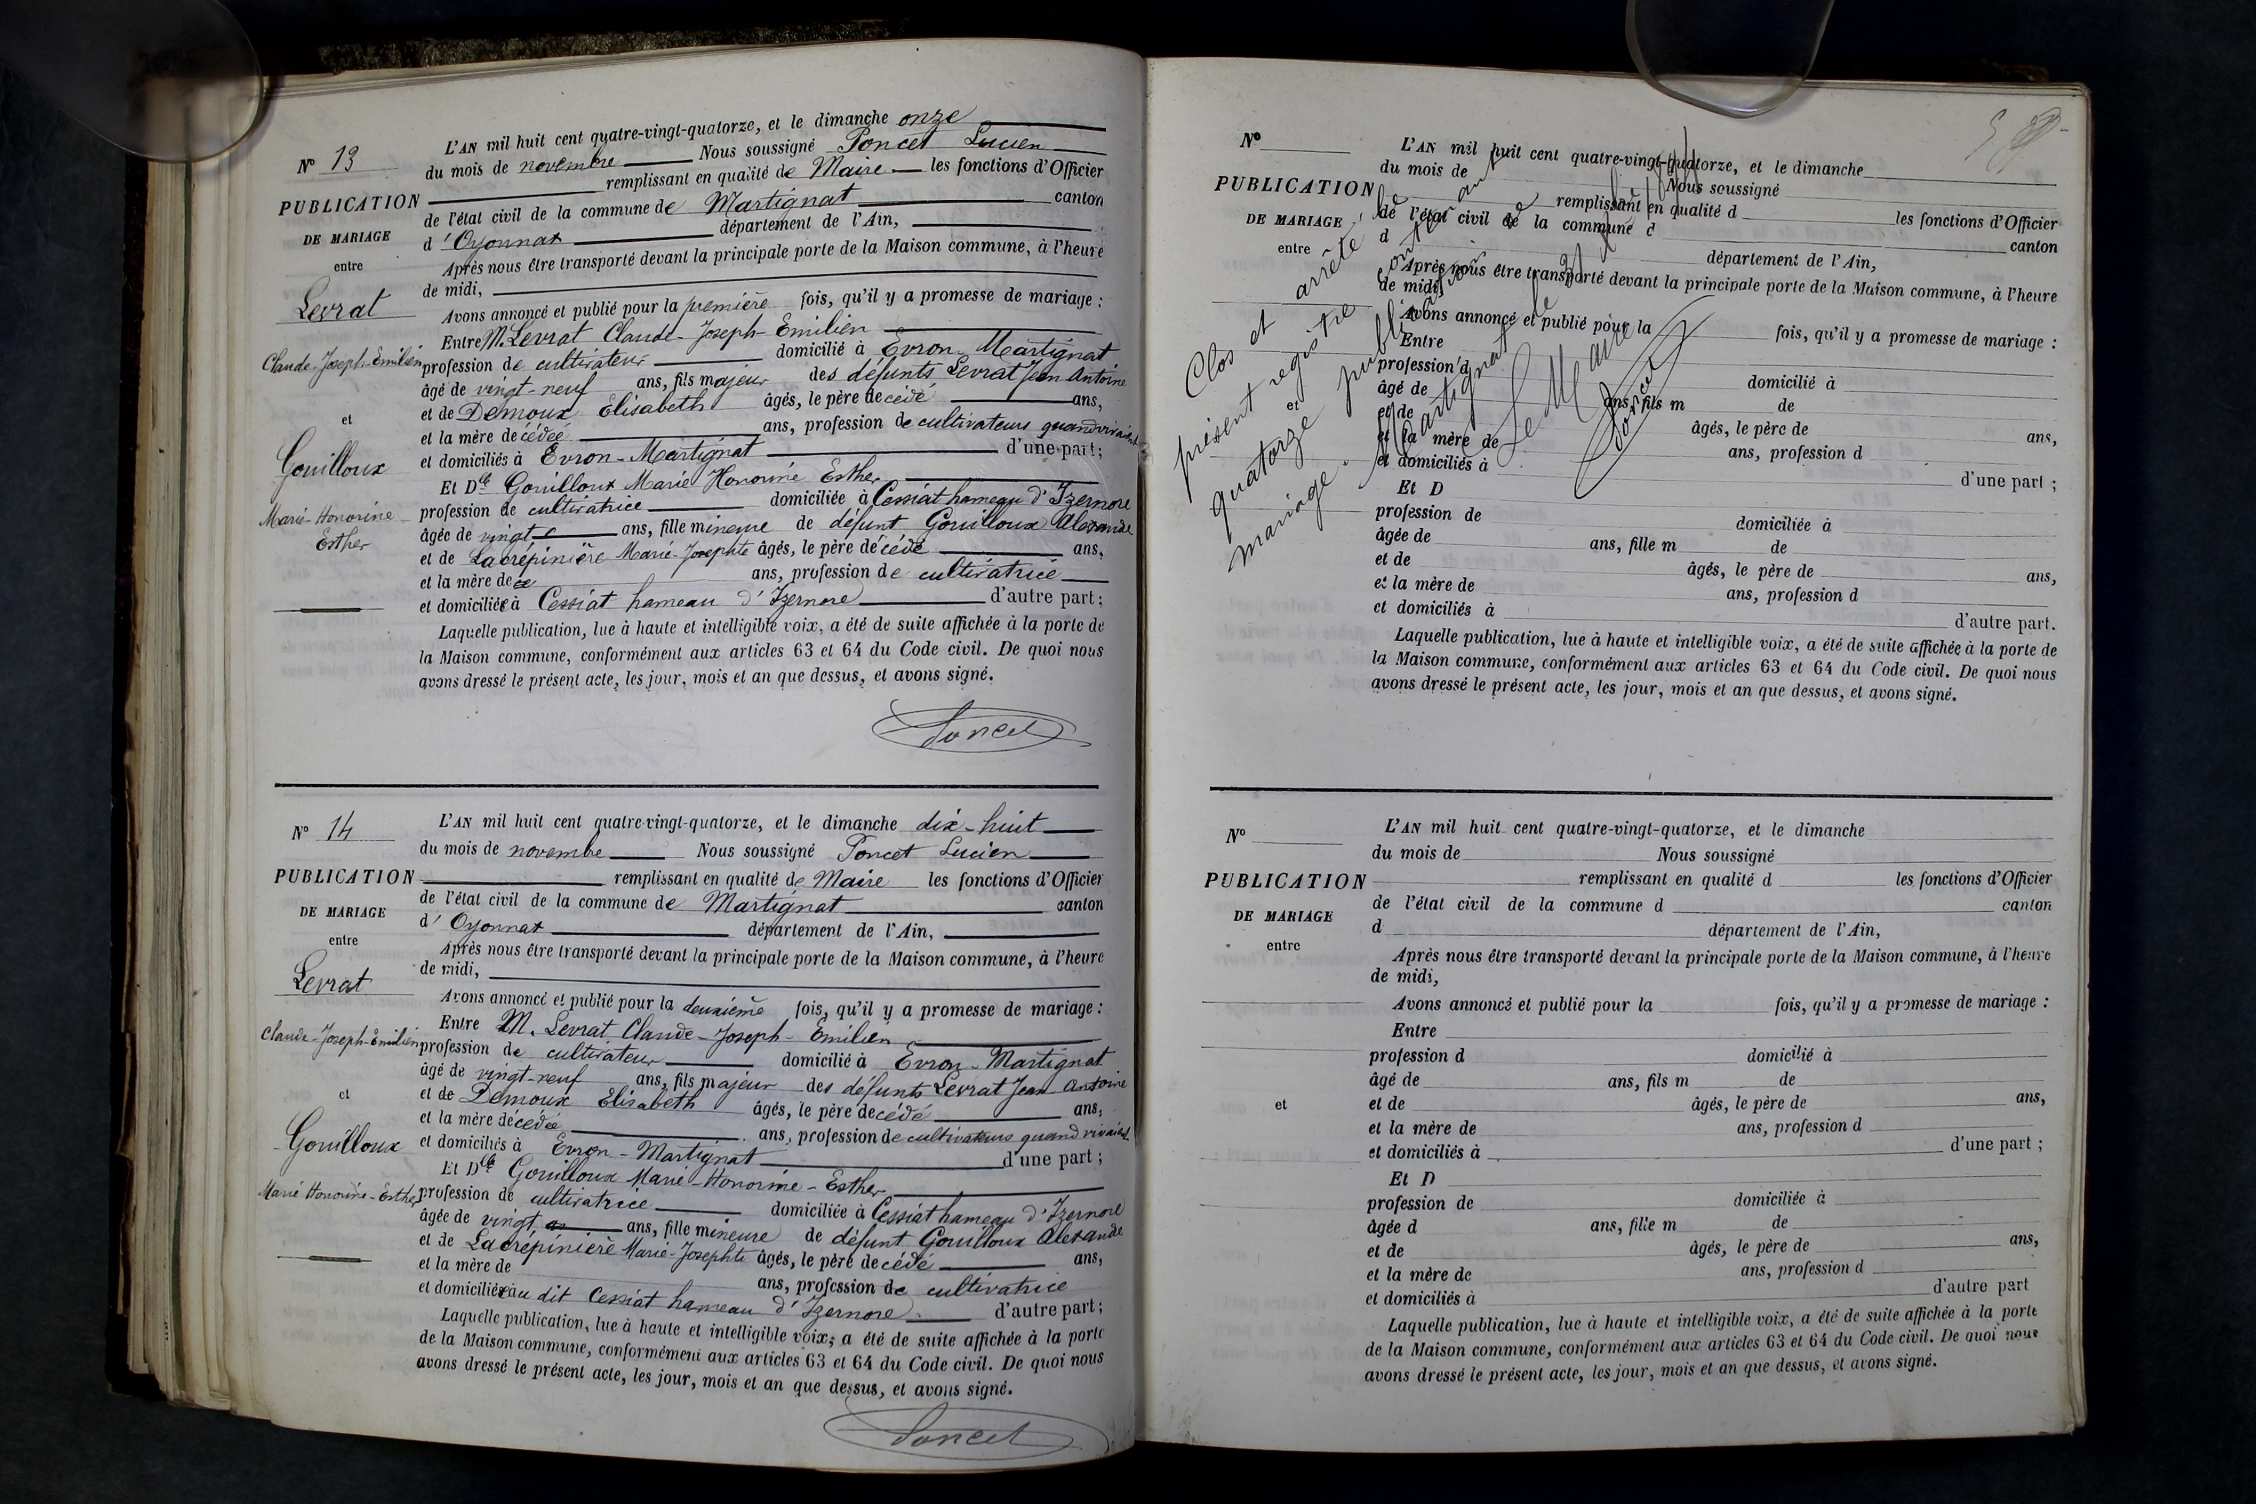 N° 13
PUBLICATION
DE MARIAGE
entre
Levrat
Claude-Joseph-Emilien
et
Gouilloux
Marie-Honorine
Esther
L'AN mil huit cent quatre-vingt-quatorze, et le dimanche onze
du mois de novembre Nous soussigné Poncet Lucien
remplissant en qualité de Maire les fonctions d'Officier
de l'état civil de la commune de Martignat canton
d'Oyonnax département de l'Ain,
Après nous être transporté devant la principale porte de la Maison commune, à l'heure
de midi,
Avons annoncé et publié pour la première fois, qu'il y a promesse de mariage :
Entre M. Levrat Claude-Joseph-Emilien
profession de cultivateur domicilié à Evron-Martignat
âgé de vingt-neuf ans, fils majeur des défunts Levrat Jean Antoine
et de Demoux Elisabeth âgés, le père décédé ans,
et la mère décédée ans, profession de cultivateurs quand vivaient
et domiciliés à Evron-Martignat d'une part;
Et Dlle Gouilloux Marie Honorine Esther
profession de cultivatrice domiciliée à Cessiat hameau d'Izernore
âgée de vingt ans, fille mineure de défunt Gouilloux Alexandre
et de Lacrépinière Marie-Josephte âgés, le père décédé ans,
et la mère de ce ans, profession de cultivatrice
et domiciliée à Cessiat hameau d'Izernore d'autre part;
Laquelle publication, lue à haute et intelligible voix, a été de suite affichée à la porte de
la Maison commune, conformément aux articles 63 et 64 du Code civil. De quoi nous
avons dressé le présent acte, les jour, mois et an que dessus, et avons signé.
Poncet
N° 14
PUBLICATION
DE MARIAGE
entre
Levrat
Claude-Joseph-Emilien
et
Gouilloux
Marie Honorine-Esther
L'AN mil huit cent quatre-vingt-quatorze, et le dimanche dix-huit
du mois de novembre Nous soussigné Poncet Lucien
remplissant en qualité de Maire les fonctions d'Officier
de l'état civil de la commune de Martignat canton
d'Oyonnax département de l'Ain,
Après nous être transporté devant la principale porte de la Maison commune, à l'heure
de midi,
Avons annoncé et publié pour la deuxième fois, qu'il y a promesse de mariage :
Entre M. Levrat Claude-Joseph-Emilien
profession de cultivateur domicilié à Evron-Martignat
âgé de vingt-neuf ans, fils majeur des défunts Levrat Jean Antoine
et de Demoux Elisabeth âgés, le père décédé ans,
et la mère décédée ans, profession de cultivateurs quand vivaient
et domiciliés à Evron-Martignat d'une part;
Et Dlle Gouilloux Marie-Honorine-Esther
profession de cultivatrice domiciliée à Cessiat hameau d'Izernore
âgée de vingt ans, fille mineure de défunt Gouilloux Alexandre
et de Lacrépinière Marie-Josephte âgés, le père décédé ans,
et la mère de ans, profession de cultivatrice
et domiciliée au dit Cessiat hameau d'Izernore d'autre part;
Laquelle publication, lue à haute et intelligible voix, a été de suite affichée à la porte
de la Maison commune, conformément aux articles 63 et 64 du Code civil. De quoi nous
avons dressé le présent acte, les jour, mois et an que dessus, et avons signé.
Poncet
Clos et arrêté le
présent registre contenant
quatorze publications de
mariage. Martignat le
Le Maire
Poncet
N°
PUBLICATION
DE MARIAGE
entre
et
L'AN mil huit cent quatre-vingt-quatorze, et le dimanche
du mois de Nous soussigné
remplissant en qualité d les fonctions d'Officier
de l'état civil de la commune d canton
d département de l'Ain,
Après nous être transporté devant la principale porte de la Maison commune, à l'heure
de midi,
Avons annoncé et publié pour la fois, qu'il y a promesse de mariage :
Entre
profession d domicilié à
âgé de ans, fils m de
et de âgés, le père de ans,
et la mère de ans, profession d
et domiciliés à d'une part ;
Et D
profession de domiciliée à
âgée de ans, fille m de
et de âgés, le père de ans,
et la mère de ans, profession d
et domiciliés à d'autre part.
Laquelle publication, lue à haute et intelligible voix, a été de suite affichée à la porte de
la Maison commune, conformément aux articles 63 et 64 du Code civil. De quoi nous
avons dressé le présent acte, les jour, mois et an que dessus, et avons signé.
N°
PUBLICATION
DE MARIAGE
entre
et
L'AN mil huit cent quatre-vingt-quatorze, et le dimanche
du mois de Nous soussigné
remplissant en qualité d les fonctions d'Officier
de l'état civil de la commune d canton
d département de l'Ain,
Après nous être transporté devant la principale porte de la Maison commune, à l'heure
de midi,
Avons annoncé et publié pour la fois, qu'il y a promesse de mariage :
Entre
profession d domicilié à
âgé de ans, fils m de
et de âgés, le père de ans,
et la mère de ans, profession d
et domiciliés à d'une part ;
Et D
profession de domiciliée à
âgée d ans, fille m de
et de âgés, le père de ans,
et la mère de ans, profession d
et domiciliés à d'autre part
Laquelle publication, lue à haute et intelligible voix, a été de suite affichée à la porte
de la Maison commune, conformément aux articles 63 et 64 du Code civil. De quoi nous
avons dressé le présent acte, les jour, mois et an que dessus, et avons signé.